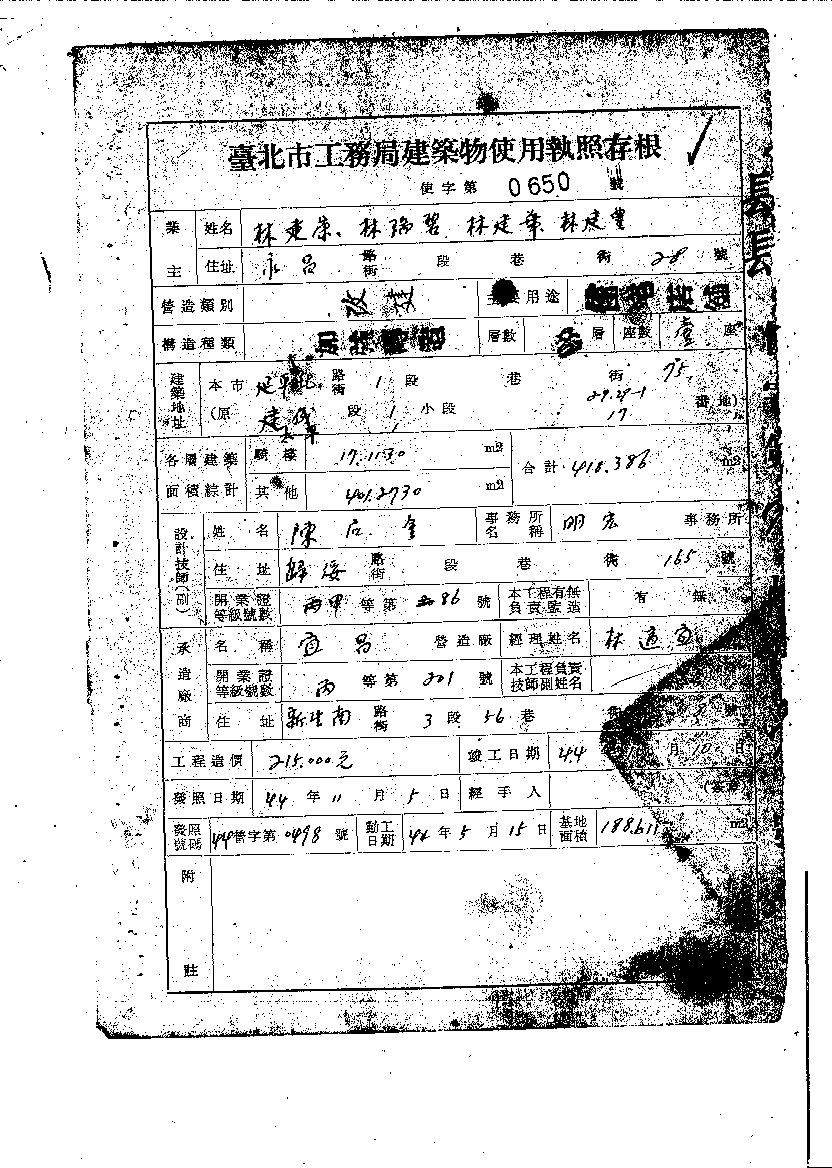 臺北市工務局建築物使用執照存根
使字第 0650 號
業主 姓名 林建康、林瑞碧 林建華 林建豐
住址 永昌 路街 段 巷 街 28 號
營造類別 改建 主要用途 店舖
構造種類 加強磚造 層數 層 座數 壹 座
建築地址 本市 延平北 路街 1 段 巷 街 75
(原 建成 段 1 小段 29.29-1 17 番地)
各層建築面積綜計 騎樓 17.1130 m2 合計 418.386 m2
其他 401.2730 m2
設計技師(副) 姓名 陳石 事務所名稱 明宏 事務所
住址 歸綏 路街 段 巷 街 165 號
開業證等級號數 丙甲 等第 86 號 本工程有無負責監造 有 無
承造廠商 名稱 宜昌 營造廠 經理姓名 林
開業證等級號數 丙 等第 201 號 本工程負責技師副姓名
住址 新生南 路街 3 段 56 巷 街 號
工程造價 215.000元 竣工日期 44 月 10 日
發照日期 44 年 11 月 5 日 經手人
發照號碼 44營字第 0498 號 動工日期 44 年 5 月 15 日 基地面積 188.611 m2
附註